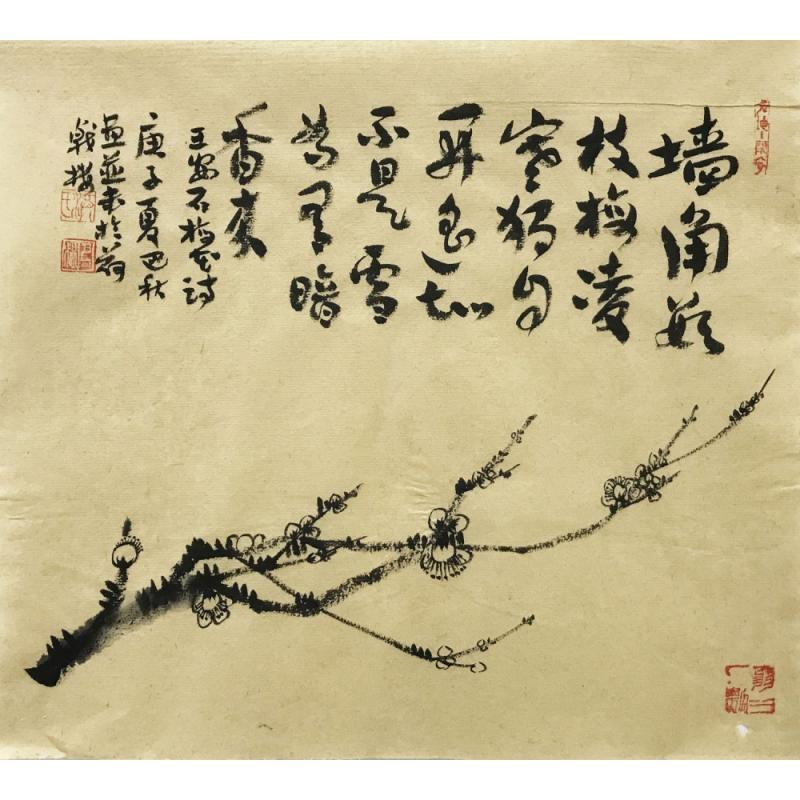 墙角数
枝梅凌
寒独自
开遥知
不是雪
为有暗
香来
王安石梅花诗
庚子夏巴秋
画并书於
楼